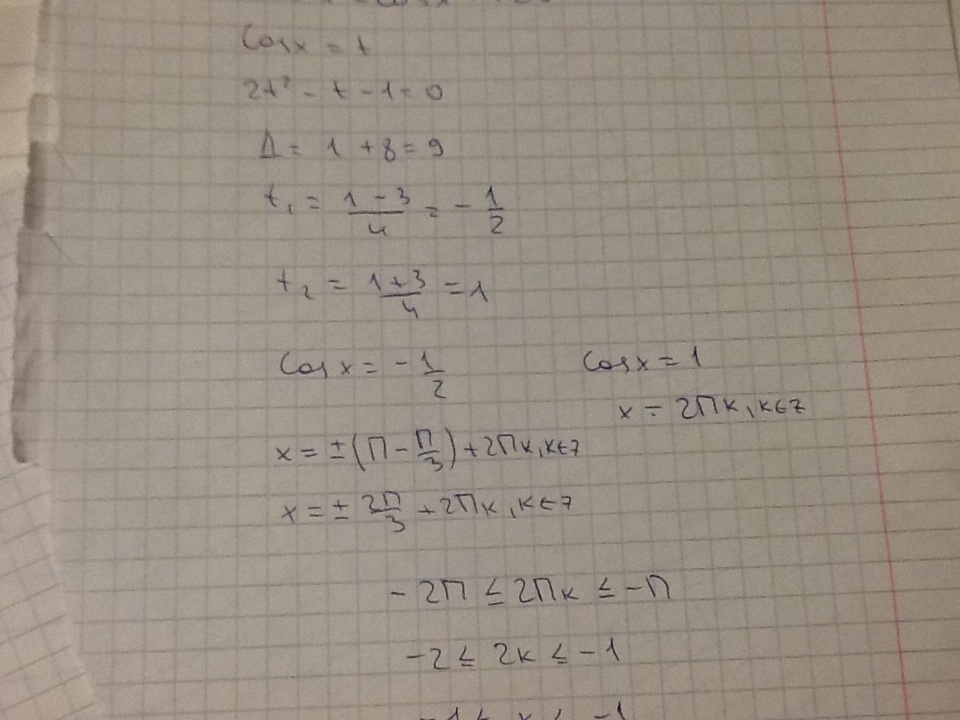 cos x = t
2t² - t - 1 = 0
Δ = 1 + 8 = 9
t₁ = (1 - 3)/4 = - 1/2
t₂ = (1 + 3)/4 = 1
cos x = - 1/2    cos x = 1
x = 2πk, k∈Z
x = ± (π - π/3) + 2πk, k∈Z
x = ± 2π/3 + 2πk, k∈Z
- 2π ≤ 2πk ≤ - π
- 2 ≤ 2k ≤ - 1